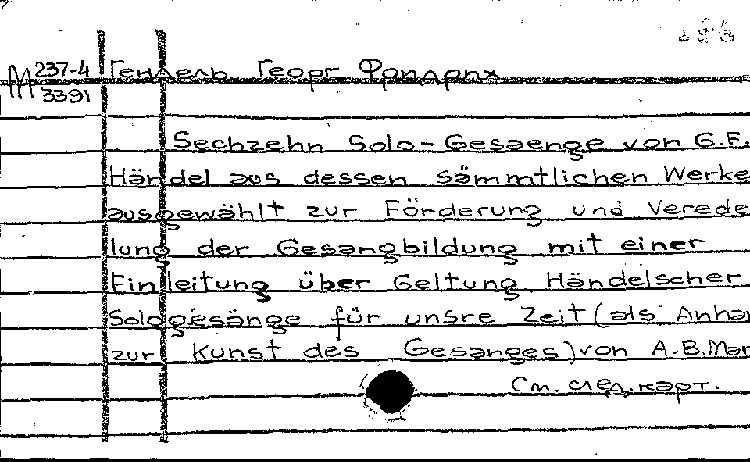 М 237-4 Гендель Георг Фридрих
3391
Sechzehn Solo-Gesaenge von G.F.
Händel aus dessen sämmtlichen Werke
ausgewählt zur Förderung und Verede
lung der Gesangbildung mit einer
Einleitung über Geltung Händelscher
Sologesänge für unsre Zeit (als Anha
zur Kunst des Gesanges) von A.B.Mar
См. след. карт.